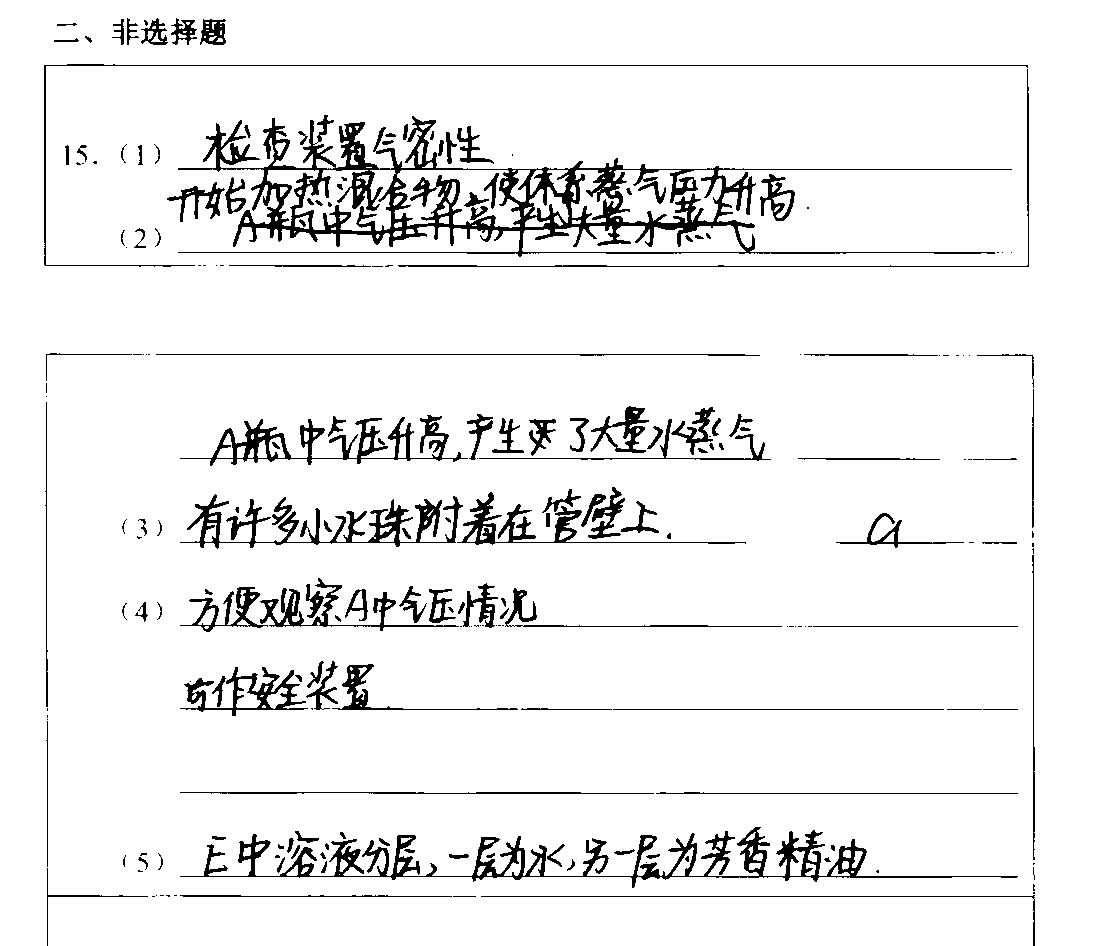 二、非选择题
15.（1）检查装置气密性
开始加热混合物,使体系蒸气压力升高.
（2）A瓶中气压升高,产生大量水蒸气
A瓶中气压升高,产生了大量水蒸气
（3）有许多小水珠附着在管壁上. a
（4）方便观察A中气压情况
可作安全装置.
（5）E中溶液分层,一层为水,另一层为芳香精油.